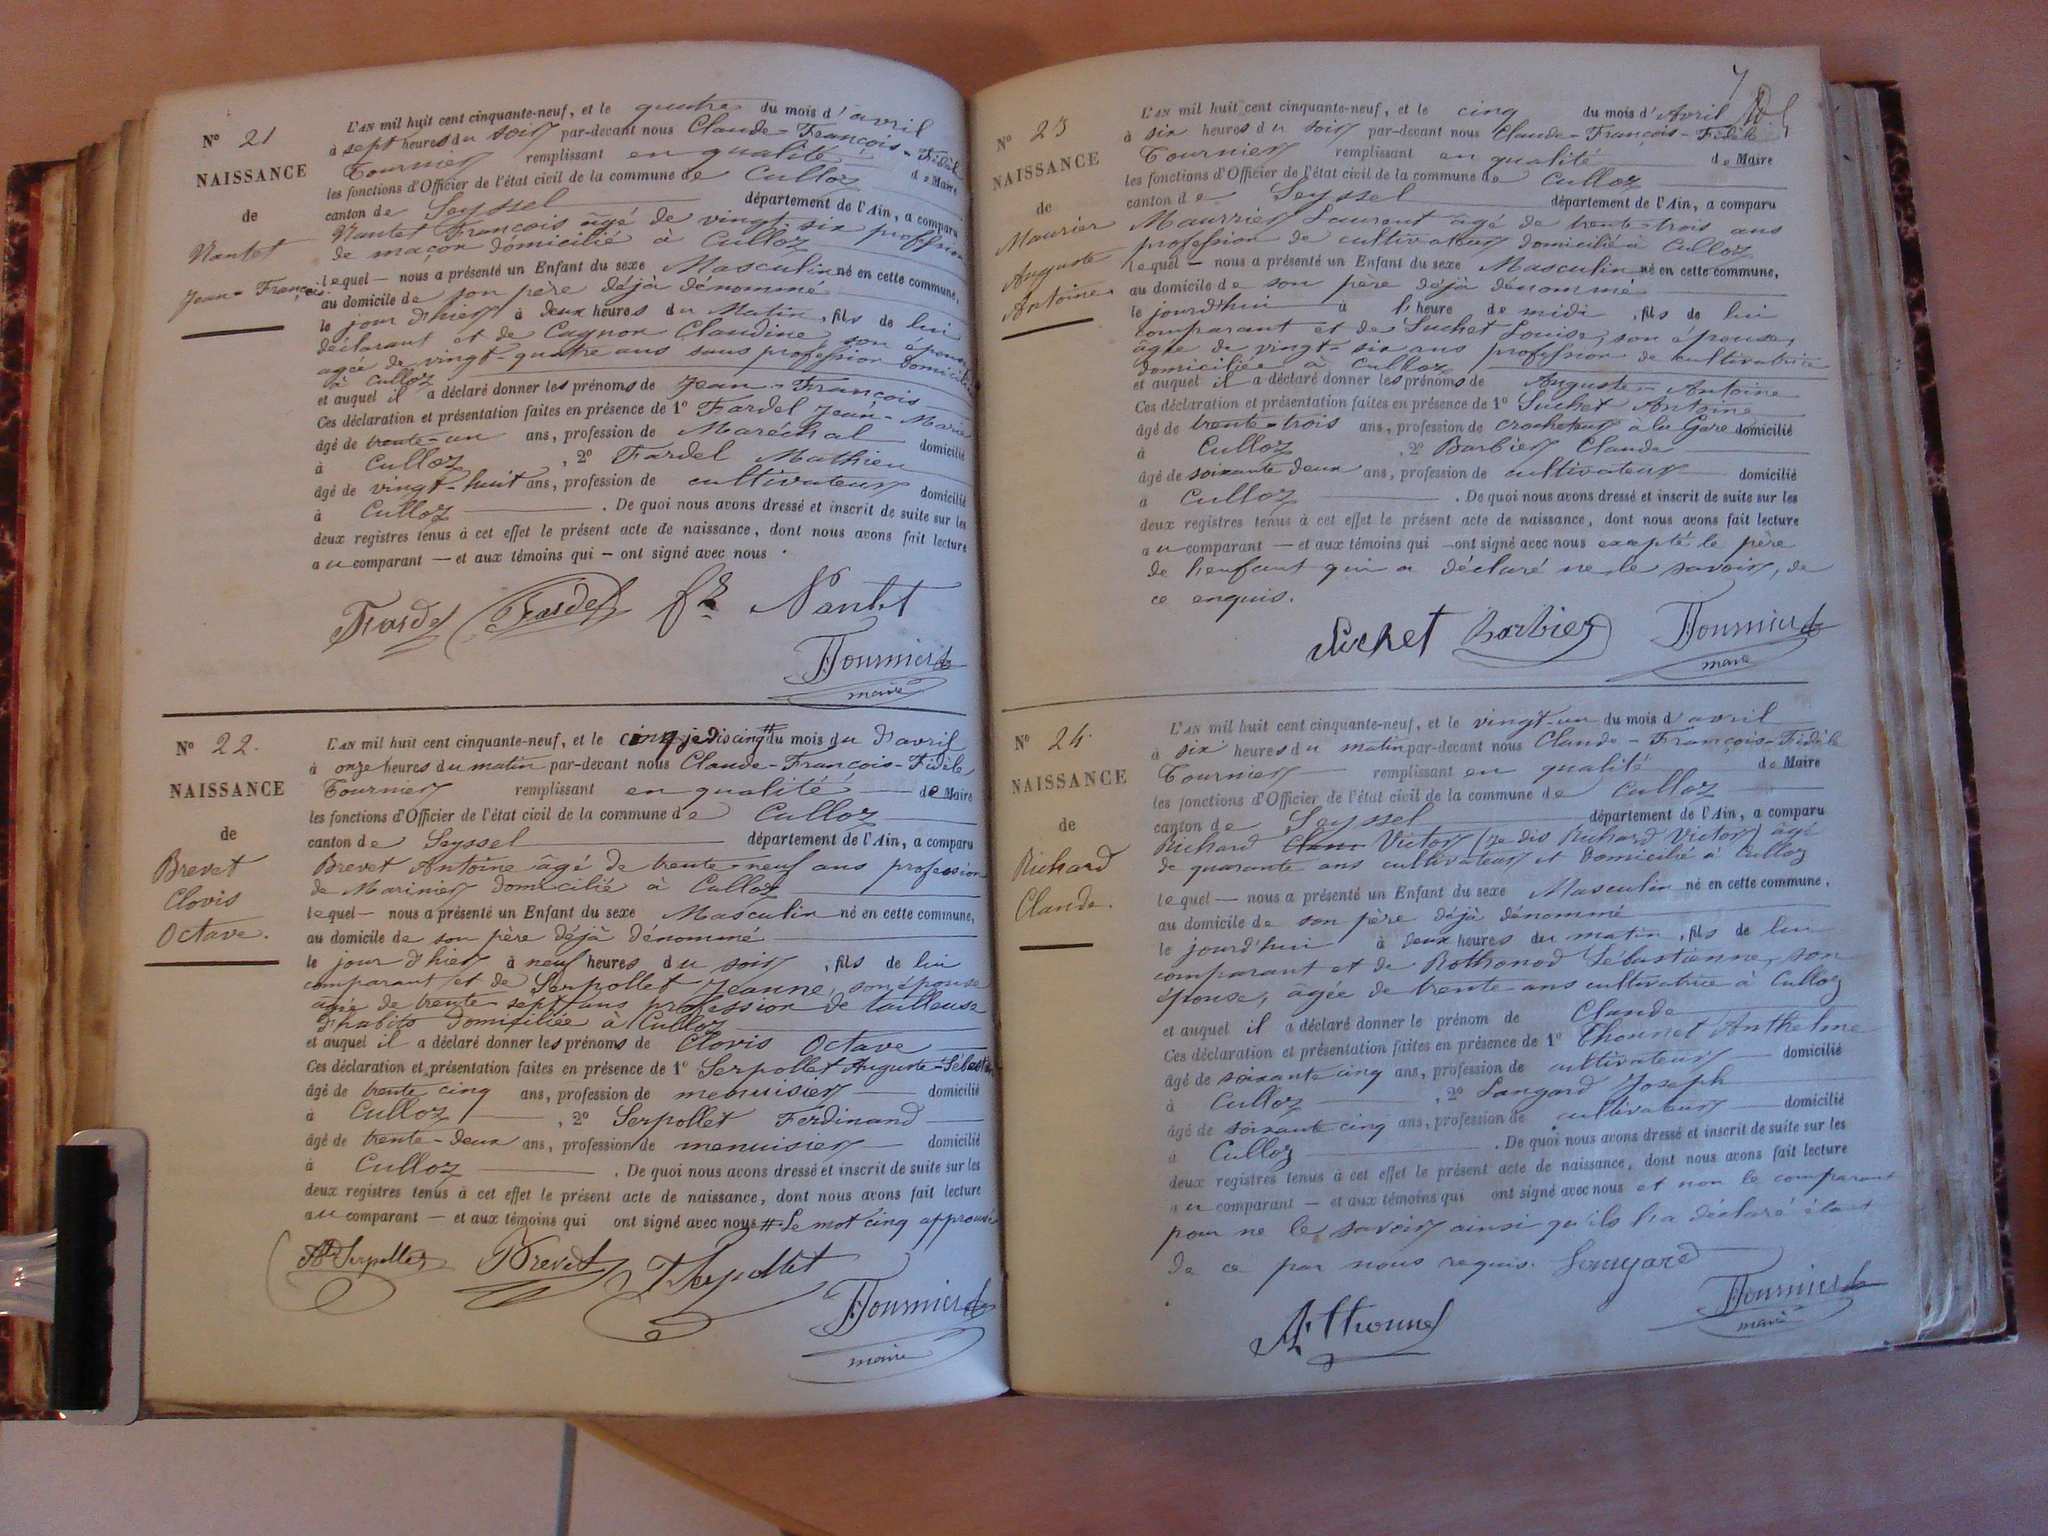 N° 21
NAISSANCE
de
Nantet
Jean-François
L'AN mil huit cent cinquante-neuf, et le quatre du mois d'avril
à sept heures du soir par-devant nous Claude-François-Fidèle
Tournier remplissant en qualité de Maire
les fonctions d'Officier de l'état civil de la commune de Culloz
canton de Seyssel département de l'Ain, a comparu
Nantet François âgé de vingt-six profession
de maçon domicilié à Culloz
lequel — nous a présenté un Enfant du sexe Masculin né en cette commune,
au domicile de son père déjà dénommé
le jour d'hier à deux heures du Matin, fils de lui
déclarant et de Cagnon Claudine, son épouse
agée de vingt-quatre ans sans profession domiciliée
à Culloz
et auquel il a déclaré donner les prénoms de Jean-François
Ces déclaration et présentation faites en présence de 1° Fardel Jean-Marie
âgé de trente-un ans, profession de Maréchal domicilié
à Culloz, 2° Fardel Mathieu
âgé de vingt-huit ans, profession de cultivateur domicilié
à Culloz. De quoi nous avons dressé et inscrit de suite sur les
deux registres tenus à cet effet le présent acte de naissance, dont nous avons fait lecture
au comparant — et aux témoins qui — ont signé avec nous.
Fardel Fardel fs Nantet
Tournier
maire
N° 22.
NAISSANCE
de
Brevet
Clovis
Octave.
L'AN mil huit cent cinquante-neuf, et le cinq je dis cinq # du mois du d'avril
à onze heures du matin par-devant nous Claude-François-Fidèle
Tournier remplissant en qualité de Maire
les fonctions d'Officier de l'état civil de la commune de Culloz
canton de Seyssel département de l'Ain, a comparu
Brevet Antoine âgé de trente-neuf ans profession
de Marinier domicilié à Culloz
lequel — nous a présenté un Enfant du sexe Masculin né en cette commune,
au domicile de son père déjà dénommé
le jour d'hier à neuf heures du soir, fils de lui
comparant et de Serpollet Jeanne, son épouse
âgée de trente sept ans profession de tailleuse
d'habits domiciliée à Culloz
et auquel il a déclaré donner les prénoms de Clovis Octave
Ces déclaration et présentation faites en présence de 1° Serpollet Auguste-Sébastien
âgé de trente cinq ans, profession de menuisier domicilié
à Culloz, 2° Serpollet Ferdinand
âgé de trente-deux ans, profession de menuisier domicilié
à Culloz. De quoi nous avons dressé et inscrit de suite sur les
deux registres tenus à cet effet le présent acte de naissance, dont nous avons fait lecture
au comparant — et aux témoins qui ont signé avec nous # Le mot cinq approuvé
Serpollet Brevet Serpollet
Tournier
maire
7
N° 23
NAISSANCE
de
Maurier
Auguste
Antoine
L'AN mil huit cent cinquante-neuf, et le cinq du mois d'Avril
à six heures du soir par-devant nous Claude-François-Fidèle
Tournier remplissant en qualité de Maire
les fonctions d'Officier de l'état civil de la commune de Culloz
canton de Seyssel département de l'Ain, a comparu
Maurrier Laurent âgé de trente-trois ans
profession de cultivateur domicilié à Culloz
lequel — nous a présenté un Enfant du sexe Masculin né en cette commune,
au domicile de son père déjà dénommé
le jourd'hui à l'heure de midi, fils de lui
comparant et de Suchet Louise, son épouse,
âgée de vingt-six ans profession de cultivatrice
domiciliée à Culloz
et auquel il a déclaré donner les prénoms de Auguste-Antoine
Ces déclaration et présentation faites en présence de 1° Suchet Antoine
âgé de trente-trois ans, profession de crocheteur à la Gare domicilié
à Culloz, 2° Barbier Claude
âgé de soixante deux ans, profession de cultivateur domicilié
à Culloz. De quoi nous avons dressé et inscrit de suite sur les
deux registres tenus à cet effet le présent acte de naissance, dont nous avons fait lecture
au comparant — et aux témoins qui — ont signé avec nous excepté le père
de l'enfant qui a déclaré ne le savoir, de
ce enquis.
Suchet Barbier Tournier
maire
N° 24.
NAISSANCE
de
Richard
Claude.
L'AN mil huit cent cinquante-neuf, et le vingt-un du mois d'avril
à six heures du matin par-devant nous Claude-François-Fidèle
Tournier remplissant en qualité de Maire
les fonctions d'Officier de l'état civil de la commune de Culloz
canton de Seyssel département de l'Ain, a comparu
Richard Victor (je dis Richard Victor) âgé
de quarante ans cultivateur et domicilié à Culloz
lequel — nous a présenté un Enfant du sexe Masculin né en cette commune,
au domicile de son père déjà dénommé
le jourd'hui à deux heures du matin, fils de lui
comparant et de Rothonod Sébastienne, son
épouse, âgée de trente ans cultivatrice à Culloz
et auquel il a déclaré donner le prénom de Claude
Ces déclaration et présentation faites en présence de 1° Thonnet Anthelme
âgé de soixante cinq ans, profession de cultivateur domicilié
à Culloz, 2° Langard Joseph
âgé de soixante cinq ans, profession de cultivateur domicilié
à Culloz. De quoi nous avons dressé et inscrit de suite sur les
deux registres tenus à cet effet le présent acte de naissance, dont nous avons fait lecture
au comparant — et aux témoins qui ont signé avec nous et non le comparant
pour ne le savoir ainsi qu'ils l'a déclaré étant
de ce par nous requis.
Tournier
maire